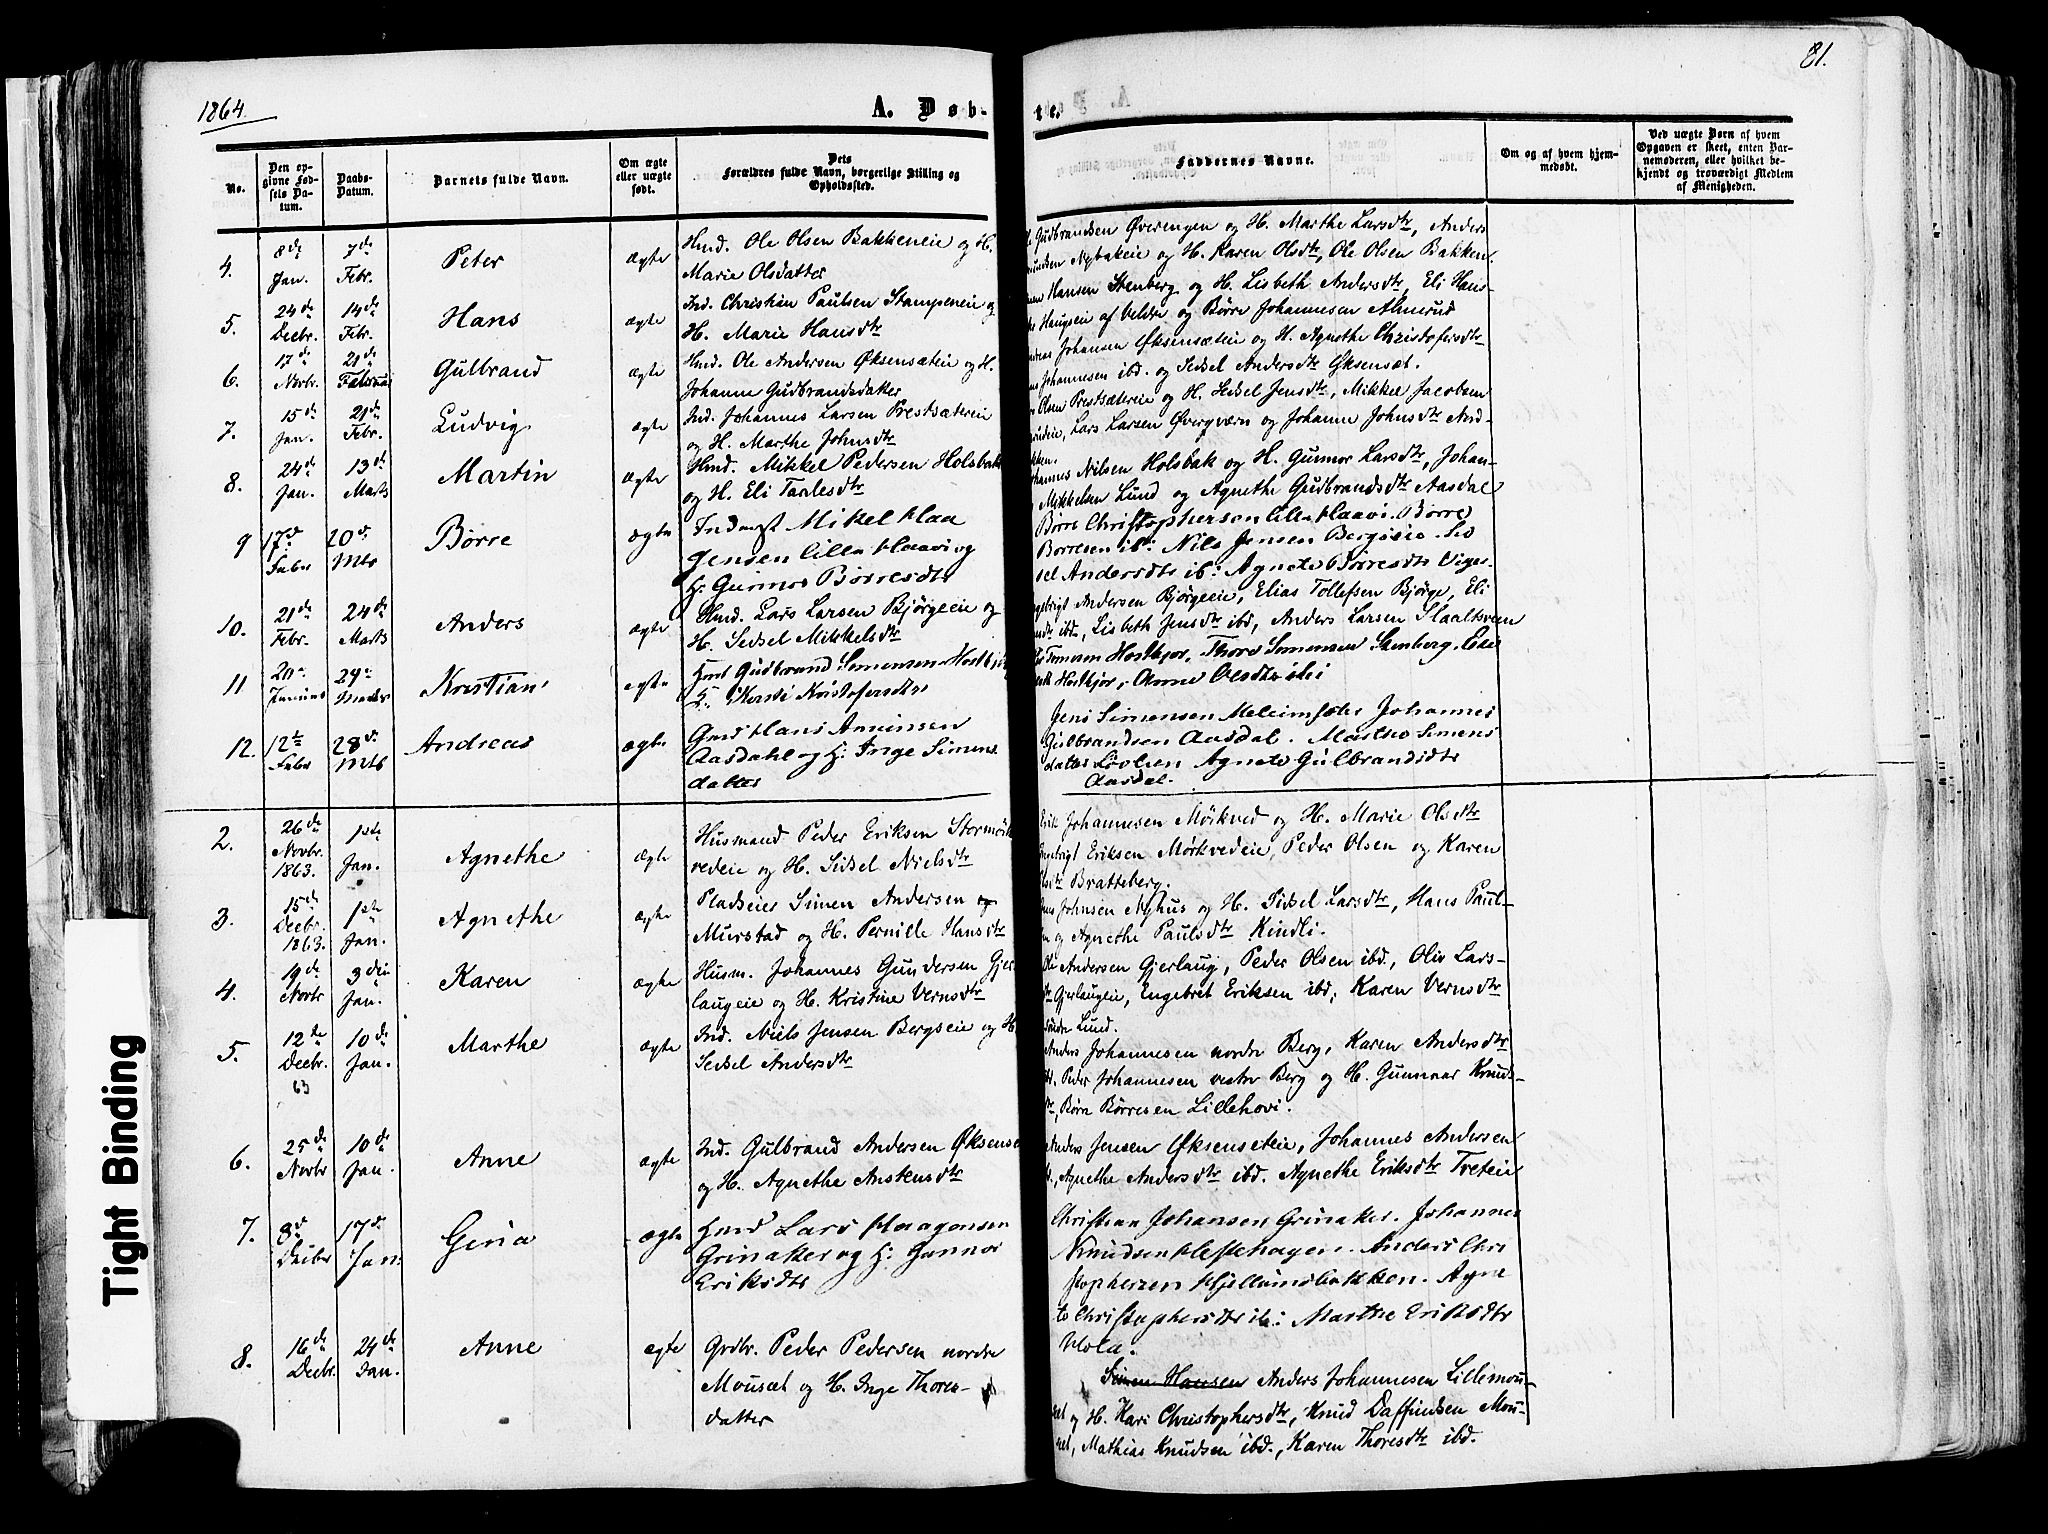 81.
1864.
A. Døb-
te.
No.
Den opgivne Fødsels Datum.
Daabs-Datum.
Barnets fulde Navn.
Om ægte eller uægte født.
Dets Forældres fulde Navn, borgerlige Stilling og Opholdssted.
Faddernes Navne.
Om og af hvem hjemmedøbt.
Ved uægte Børn af hvem Opgaven er skeet, enten Barnemoderen, eller hvilket bekjendt og troværdigt Medlem af Menigheden.
4. 8de Jan. 7de Febr. Peter ægte Hmd. Ole Olsen Bakkeneie og H.
Marie Olsdatter
Gudbrandsen Øverengen og H. Marthe Larsdtr, Anders
Nybakeie og H. Karen Olsdtr, Ole Olsen Bakken
5. 24de Decbr. 14de Febr. Hans ægte Ind. Christian Paulsen Stampeneie og
H. Marie Hansdtr
Hansen Stenberg og H. Lisbeth Andersdtr, Eli Hans-
Haugseie af Veldre og Børre Johannesen Almerud
6. 17de Novbr. 21de Februar Gulbrand ægte Hmd. Ole Andersen Øksensæteie og H.
Johanne Gudbrandsdatter
Johansen Øksensæteie og H. Agnethe Christofersdtr
Johannesen ibd. og Sidsel Andersdtr Øksensæt.
7. 15de Jan. 21de Febr. Ludvig ægte Ind. Johannes Larsen Prestsætereie
og H. Marthe Johnsdtr
Olsen Prestsæterie og H. Sidsel Jensdtr, Mikkel Jacobsen
Lars Larsen Øvergværn og Johanne Johnsdtr Nord-
8. 24de Jan. 13de Marts Martin ægte Hmd. Mikkel Pedersen Holsbak
og H. Eli Taalesdtr
Nilsen Holsbak og H. Gunnor Larsdtr, Johan-
Mikkelsen Lund og Agnethe Gudbrandsdtr Aasdal
9 17de Feber 20de Mts Børre ægte Inderst Mikel
Jensen Lille Haavi og
H: Gunnor Børresdtr
Børre Christophersen Lille Haavi. Børre
Børresen ib: Nils Jensen Bergseie. Sid
sel Andersdtr ib: Agnete Børresdtr
10. 21de Febr. 24de Marts Anders ægte Hmd. Lars Larsen Bjørgeeie og
H. Sidsel Mikkelsdtr
Andersen Bjørgeeie, Elias Tollefsen Bjørge, Eli
ibd, Lisbeth Jensdtr ibd, Anders Larsen Staaltsveen
11 Kristian ægte Gudbrand Simensen
Kristofersdtr
Thore Simensen Stenberg.
12. 12te Feber 28de Mts Andreas ægte Gmd Hans
Aasdahl og H: Inge Simens
datter
Jens Simensen Johannes
Gulbrandsen Aasdal. Marthe Simens
datter Løvlien Agnete Gulbrandsdtr
Aasdal.
2. 26de Novbr. 1863. 1ste Jan. Agnethe ægte Husmand Peder Eriksen Stormørk
vedeie og H. Sidsel Nielsdtr
Erik Johannesen Mørkved og H. Marie Olsdtr
Eriksen Mørkvedeie, Peder Olsen og Karen
Bratteberg.
3. 15de Decbr. 1863. 1ste Jan. Agnethe ægte Pladseier Simen Andersen
Murstad og H. Pernille Hansdtr
Johnsen Nyhus og H. Sidsel Larsdtr, Hans Paul-
og Agnethe Paulsdtr Kindli.
4. 19de Novbr 3die Jan. Karen ægte Husm. Johannes Gundersen Gjer-
laugeie og H. Kristine Vernsdtr
Ole Andersen Gjerlaug, Peder Olsen ibd., Oliv Lars-
Gjerlaugeie, Engebret Eriksen ibd, Karen Vernsdtr
søndre Lund.
5. 12te Decbr. 63 10de Jan. Marthe ægte Ind. Niels Jensen Bergseie og H.
Sidsel Andersdtr
Anders Johannesen nordre Berg, Karen Andersdtr
Peder Johannesen vestre Berg og H. Gunnar Knuds-
Børre Børresen Lillehovi.
6. 25de Novbr 10de Jan. Anne ægte Ind. Gulbrand Andersen Øksensæ
og H. Agnethe Anstensdtr
Anders Jensen Øksenseteie, Johannes Andersen
Agnethe Andersdtr ibd. Agnethe Eriksdtr Treteie
7. 8de Decber 17de Jan. Gina ægte Hmd Lars Haagensen
Grinaker og H: Gunnor
Eriksdtr
Christian Johansen Grinaker. Johannes
Knudsen Hestehagen. Anders Chri
stophersen Hjellumsbakken. Agne
te Christophersdtr ib: Marthe Eriksdtr
Hola.
8. 16de Decbr. 24de Jan. Anne ægte Grdbr. Peder Pedersen nordre
Mousæt og H. Inge Thores-
datter
Simen Hansen Anders Johannesen Lillemou-
sæt og H. Kari Christophersdtr, Knud Daffindsen Mou-
sæt, Mathias Knudsen ibd., Karen Thoresdtr ibd.
Tight Binding